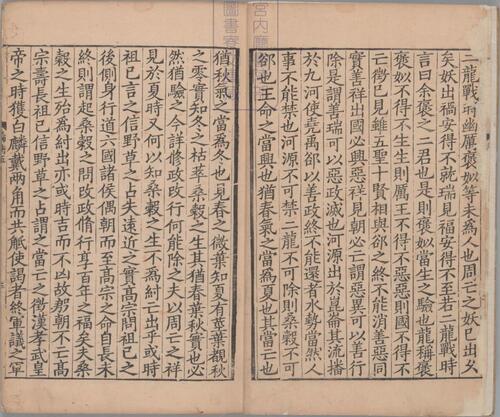 二龍戰時幽厲褒姒等未為人也周亡之妖已出久
矣妖出禍安得不就瑞見福安得不至若二龍戰時
言曰余褒之二君也是則褒姒當生之驗也龍稱褒
褒姒不得不生生則厲王不得不惡惡則國不得不
亡徵已見雖五聖十賢相與卻之終不能消善惡同
實善祥出國必興惡祥見朝必亡謂惡異可以善行
除是謂善瑞可以惡政滅也河源出於崑崙其流播
於九河使堯禹卻以善政終不能還者水勢當然人
事不能禁也河源不可禁二龍不可除則桑穀不可
卻也王命之當興也猶春氣之當為夏也其當亡也
猶秋氣之當為冬也見春之微葉知夏有莖葉覩秋
之零實知冬之枯萃桑穀之生其猶春葉秋實也必
然猶驗之今詳修政改行何能除之夫以周亡之祥
見於夏時又何以知桑穀之生不為紂亡出乎或時
祖已言之信野草之占失遠近之實高宗問祖已之
後側身行道六國諸侯偶朝而至高宗之命自長未
終則謂起桑穀之問改政脩行享百年之福矣夫桑
穀之生殆為紂出亦或時吉而不凶故殷朝不亡高
宗壽長祖已信野草之占謂之當亡之徵漢孝武皇
帝之時獲白麟戴兩角而共觝使謁者終軍議之軍
宮内廳
圖書寮